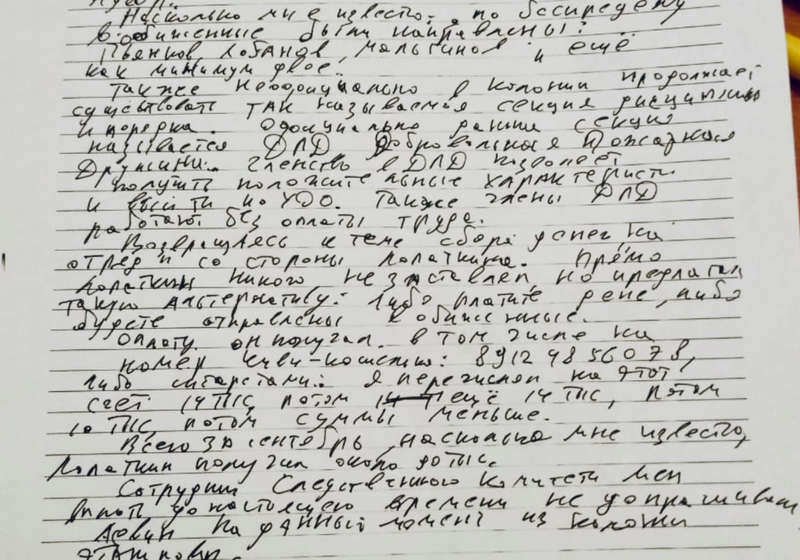 Насколько мне известно, по беспределу
в обиженные были направлены:
Пьянков Лобанов, Мальгинов и ещё
как минимум двое.
Также неофициально в колонии продолжает
существовать так называемая секция дисциплины
и порядка. Официально раньше секция
называется ДПД Добровольная Пожарная
Дружина. Членство в ДПД позволяет
получить положительные характеристи
и выйти по УДО. Также члены ДПД
работают без оплаты труда.
Возвращаясь к теме сбора денег на
отряд и со стороны Лопаткина. Прямо
Лопаткин никого не заставлял, но предлагал
такую альтернативу: либо платите деньги, либо
будете отправлены в обиженные.
Оплату он получал в том числе на
номер киви-кошелька: 89124856078,
либо сигаретами. Я перечислял на этот
счёт 14 тыс, потом ещё 14 тыс, потом
10 тыс, потом суммы меньше.
Всего за сентябрь, насколько мне известно,
Лопаткин получил около 90 тыс.
Сотрудники Следственного комитета меня
вплоть до настоящего времени не допрашивали
на данный момент из колонии
этапирован.